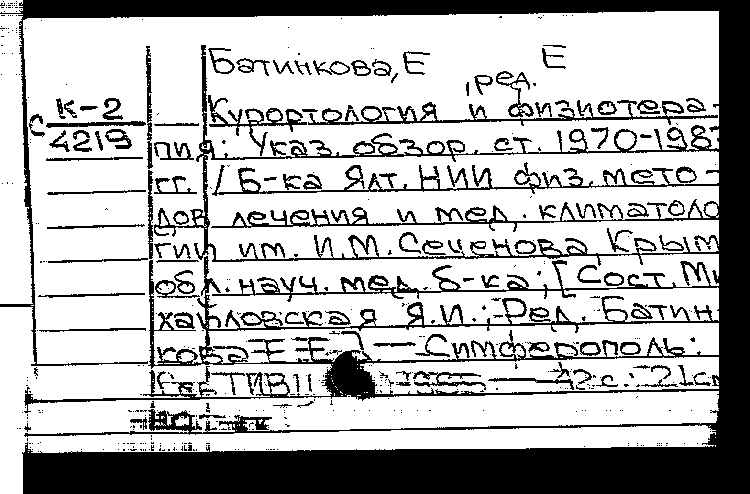 Батинкова, Е Е
, ред.
С К-2 Курортология и физиотера-
4219 пия: Указ. обзор. ст. 1970-198
гг. / Б-ка Ялт. НИИ физ. мето-
дов лечения и мед. климатоло
гии им. И.М. Сеченова, Крым
обл. науч. мед. б-ка; [Сост. Ми
хайловская Я.И.; Ред. Батин-
кова Е Е ] — Симферополь:
1985 — 42 с. 21 см